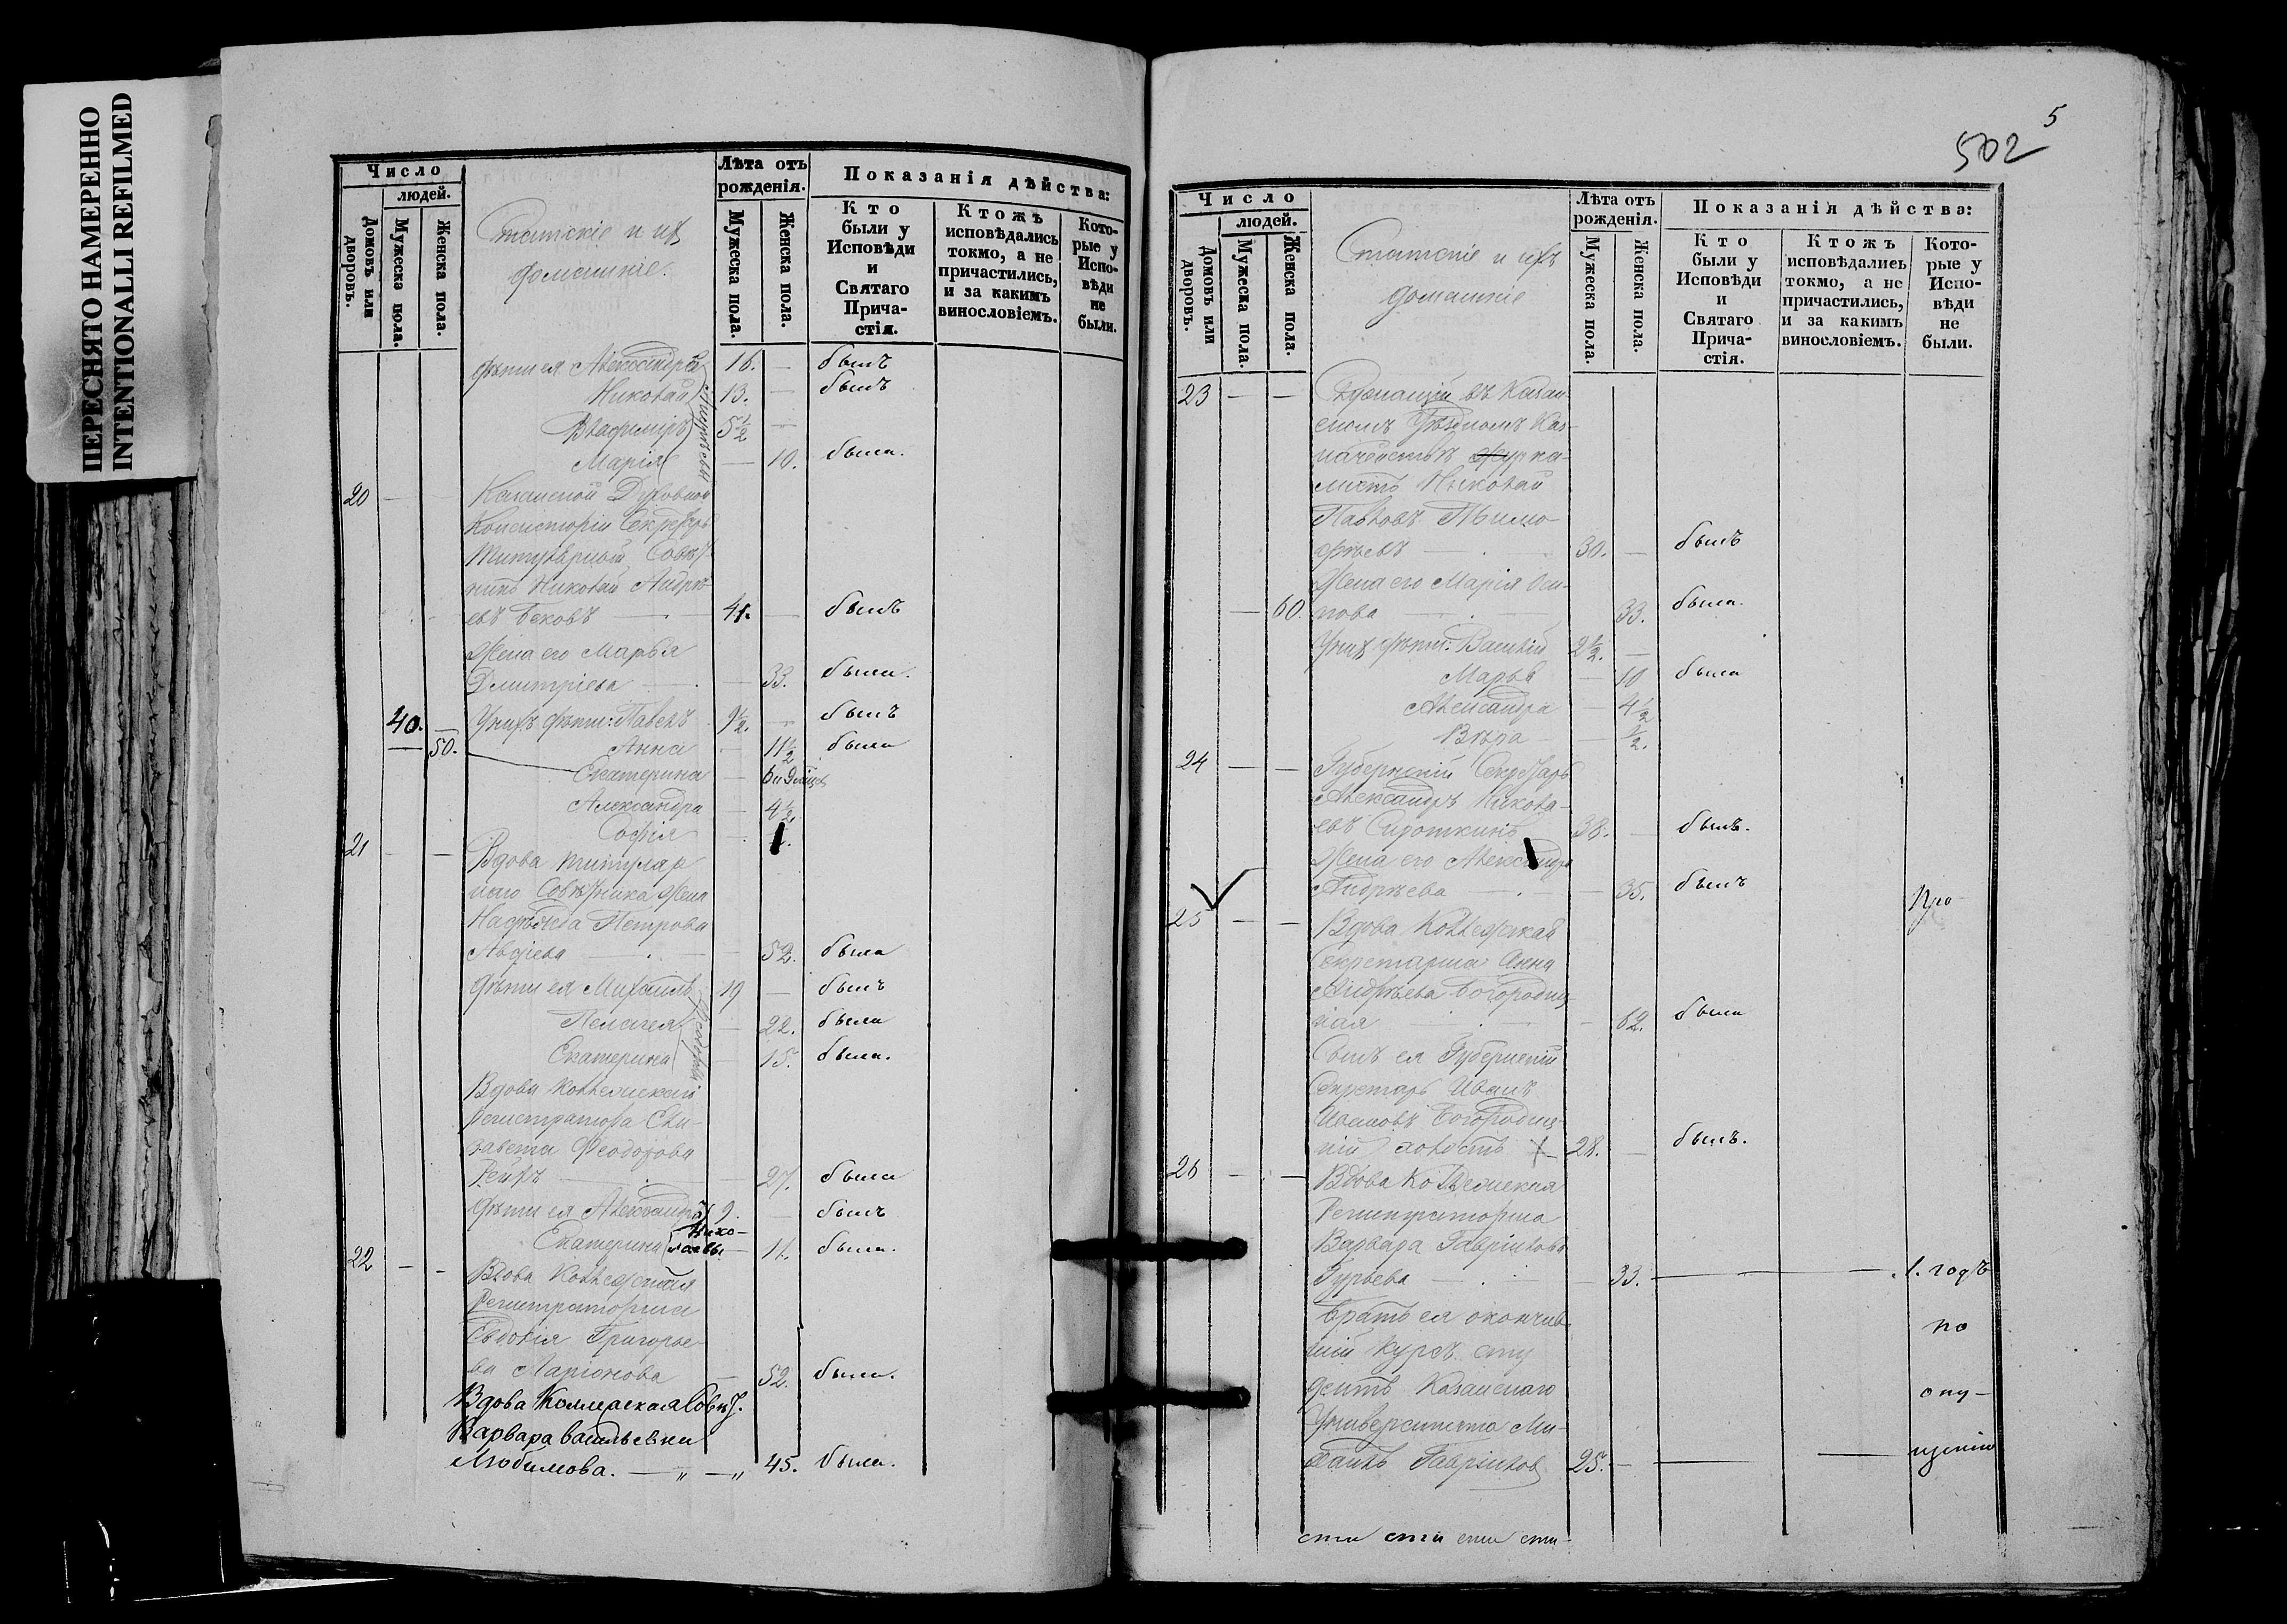 ПЕРЕСНЯТО НАМЕРЕННО
INTENTIONALLI REFILMED
Число
людей.
Домовъ или дворовъ.
Мужеска пола.
Женска пола.
Статскіе и ихъ
домашніе.
Лѣта отъ рожденія.
Мужеска пола.
Женска пола.
Показанія дѣйства:
Кто были у Исповѣди и Святаго Причастія.
Ктожъ исповѣдались токмо, а не причастились, и за какимъ винословіемъ.
Которые у Исповѣди не были.
дѣти ея Александръ 16. — былъ
Николай 13. — былъ
Владиміръ 5 1/2 —
Марія — 10. была.
20 — — Казанской Духовной
Консисторіи Секретарь
Титулярный Совѣт-
никъ Николай Андре-
евъ Бековъ — 41. — былъ
Жена его Марья
Дмитріева — — 33. была.
40. — У нихъ дѣти: Павелъ 9 1/2. — былъ
— 50. Анна — 11 1/2 была
Екатерина — 6 и 9 мѣсяц
Александра — 4 1/2.
Софія — 1.
21 — — Вдова титуляр
наго Совѣтника Жена
Надежда Петрова
Авдіева — — 52. была
дѣти ея Михаилъ 19 — былъ
Пелагея — 22. была
Екатерина — 15. была.
Вдова Коллежскаго
Регистратора Ели-
завета Феодорова
— 27. была
дѣти ея Александръ 9. — былъ
Екатерина Нико-
лаевы — 11. была.
22 — — Вдова Коллежская
Регистраторша
Евдокія Григорье-
ва Ларіонова — 52. была.
Вдова Коллежская Совѣт.
Варвара Васильевна
Любимова. — „ — „ 45. была.
5
502
Число
людей.
Домовъ или дворовъ.
Мужеска пола.
Женска пола.
Статскіе и ихъ
домашніе
Лѣта отъ рожденія.
Мужеска пола.
Женска пола.
Показанія дѣйства:
Кто были у Исповѣди и Святаго Причастія.
Ктожъ исповѣдались токмо, а не причастились, и за какимъ винословіемъ.
Которые у Исповѣди не были.
23 — — Служащій въ Казан-
скомъ Уѣздномъ Каз-
начействѣ журна-
листъ Николай
Павловъ Тимо-
фѣевъ — 30. — былъ
Жена его Марія Оси-
— 60. пова — 33. была.
У нихъ дѣти: Василій 2 1/2. —
Марья — 10 была
Александра — 4 1/2
Вѣра — 1/2.
24 — — Губернскій Секретарь
Александръ Никола-
евъ Сироткинъ 38. — былъ.
Жена его Александра
Андреева — — 35. былъ
Про-
25 — — Вдова Коллежская
Секретарша Анна
Андреева Богородиц-
кая — 62. была
Сынъ ея Губернскій
Секретарь Иванъ
Ивановъ Богородиц-
кій холостъ 28. — былъ.
26 — — Вдова Коллежская
Регистраторша
Варвара Гаврилова
Гурьева — — 33. — — 1. годъ
Братъ ея окончив-
по
шій курсъ сту
дентъ Казанскаго
опу-
Университета Ми-
хаилъ Гавриловъ 25. — — — щенію
сти сти сти сти-